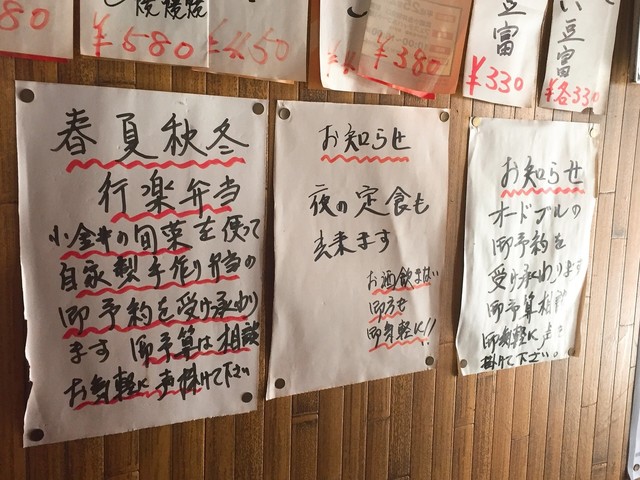 80
焼
¥580
50
¥380
豆富
¥330
い豆富
¥各330
春夏秋冬
行楽弁当
小金井の旬菜を使って
自家製手作り弁当の
御予約を受け承わり
ます 御予算は相談
お気軽に声掛けて下さい
お知らせ
夜の定食も
出来ます
お酒飲まない
御方も
御気軽に!!
お知らせ
オードブルの
御予約を
受け承わります
御予算相談
御気軽に声を
掛けて下さい。